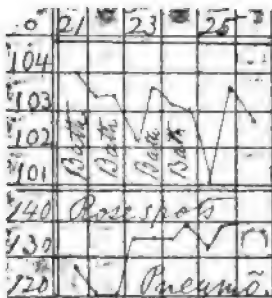 21 23 25
104
103
102
101
Bath Bath Bath Bath
140 Rose spots
130
120 Pneumõ